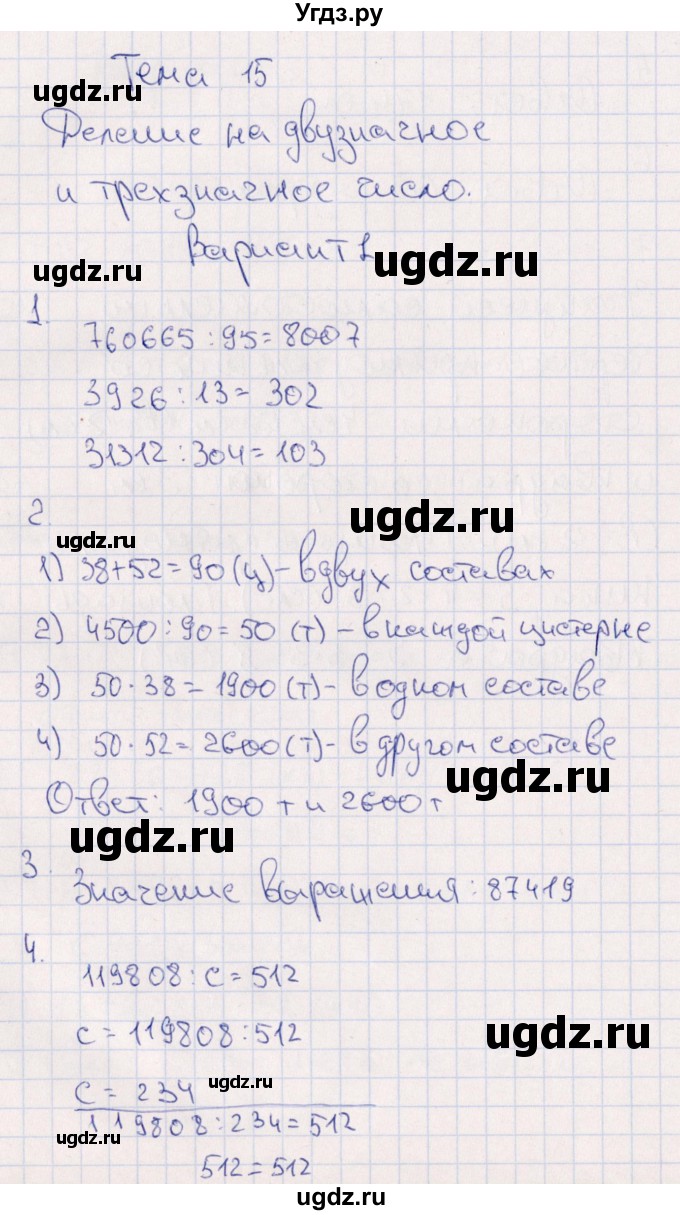 Угдз.ру
Тема 15
ugdz.ru
Деление на двузначное
и трехзначное число.
Вариант 1
ugdz.ru
ugdz.ru
1.
760665 : 95 = 8007
3926 : 13 = 302
31312 : 304 = 103
2.
ugdz.ru
ugdz.ru
1) 38+52=90 (ц) - в двух составах
2) 4500 : 90 = 50 (т) - в каждой цистерне
3) 50 · 38 = 1900 (т) - в одном составе
4) 50 · 52 = 2600 (т) - в другом составе
ugdz.ru
Ответ: 1900 т и 2600 т
ugdz.ru
3.
Значение выражения: 87419
4.
119808 : c = 512
c = 119808 : 512
ugdz.ru
c = 234
ugdz.ru
119808 : 234 = 512
ugdz.ru
512 = 512
ugdz.ru